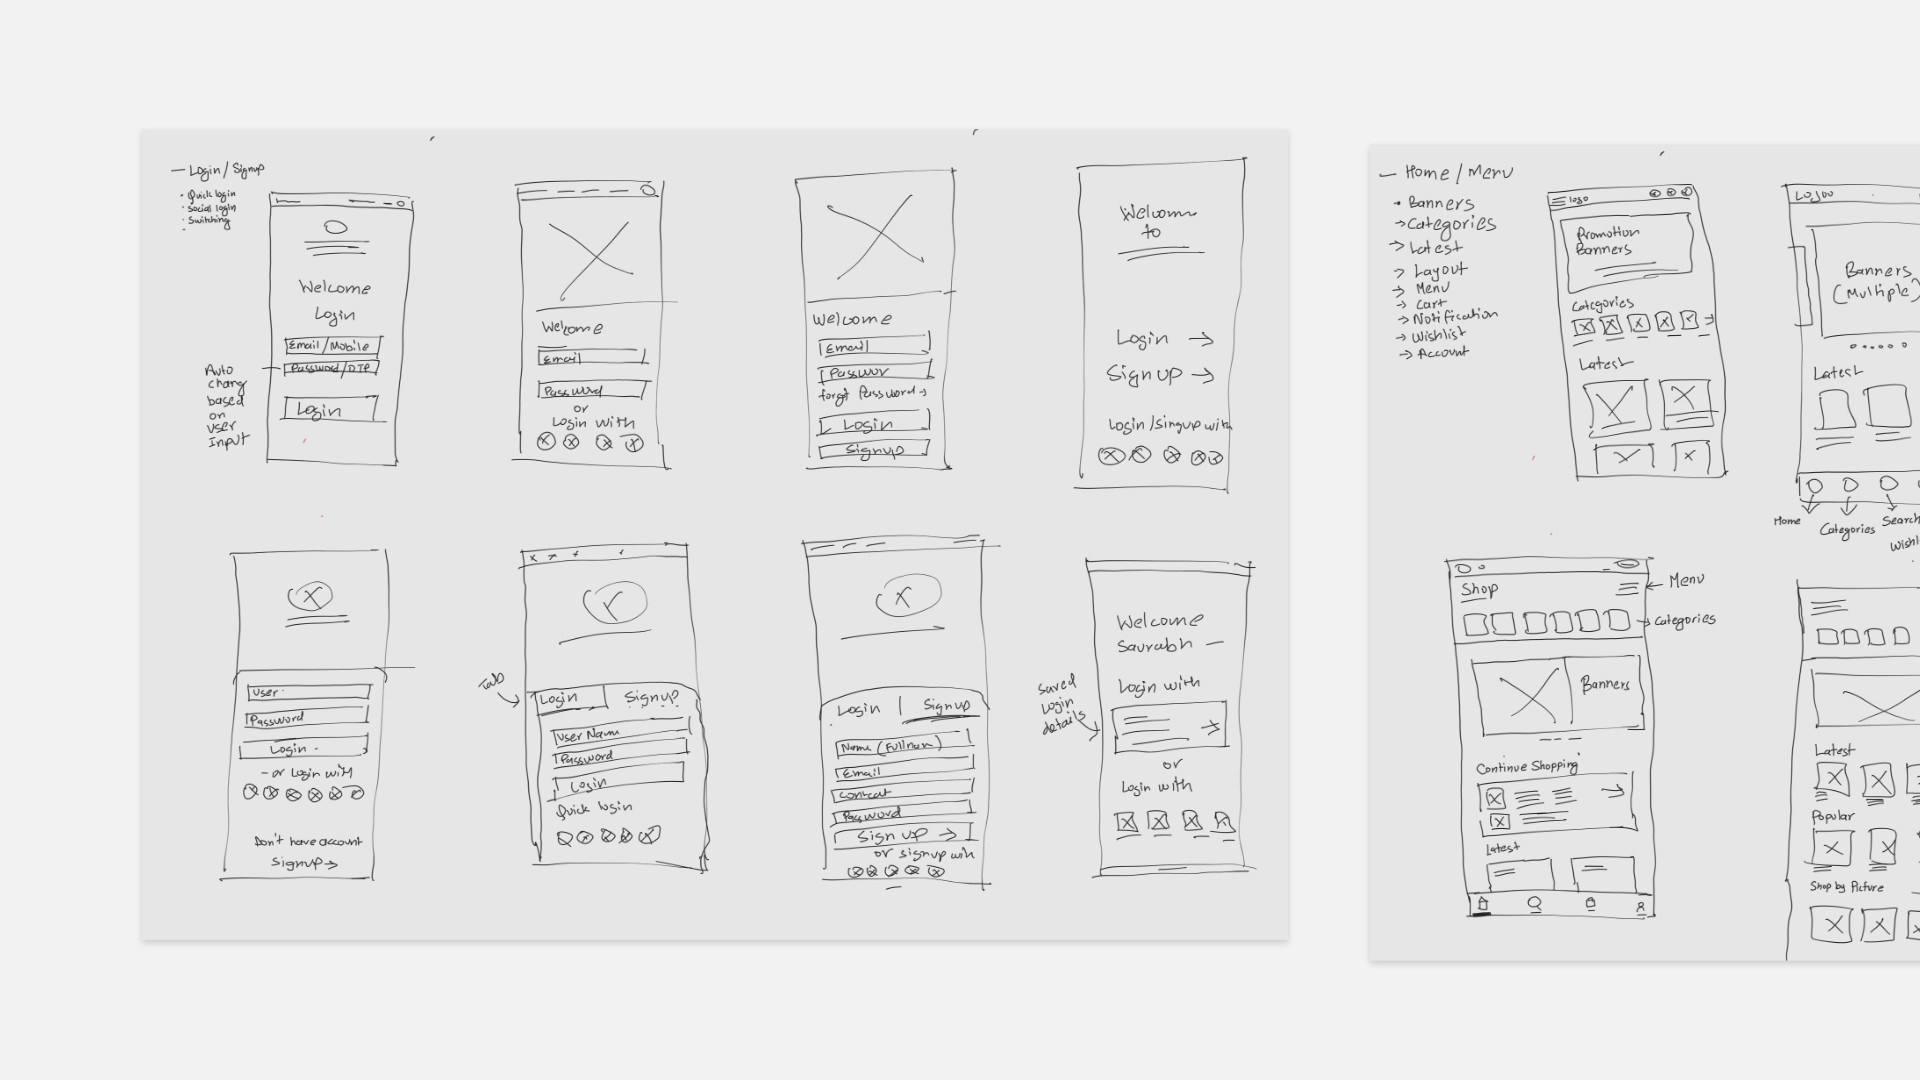 Login / Signup
Quick login
Social login
Switching
Welcome
Login
Email/Mobile
Password/OTP
Login
Auto
chang
based
on
user
Input
Welcome
Email
Password
or
Login with
Welcome
Email
Passwor
forgt Password →
Login
Signup
Welcom
to
Login →
Signup →
Login/Singup with
User
Password
Login
- or Login with
Don't have account
Signup →
Tab
Login
Signup
User Nam
Password
Login
Quick login
Login | Signup
Name (Fullnam)
Email
Password
Sign up →
or signup with
Welcome
Saurabh —
Login with
Saved
Login
details
or
Login with
— Home / Menu
• Banners
→ Categories
→ Latest
→ Layout
→ Menu
→ Cart
→ Notification
→ Wishlist
→ Account
logo
Promotion
Banners
Categories
Latest
Banners
(Multiple)
Latest
Home
Categories
Search
Wishl
Shop
Menu
Categories
Banners
Continue Shopping
Latest
Latest
Popular
Shop by Picture